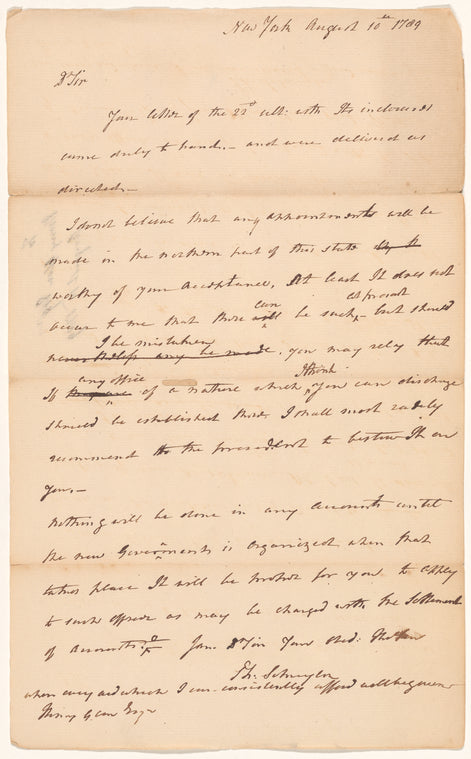 New York August 10th 1789
Dr Sir
Your letter of the 22d ult: with Its inclosures
came duly to hand,- and were delivered as
directed.-
I do not believe that any appointments will be
made in the northern part of this state
worthy of your acceptance, At least It does not
can at present
occur to me that there will be such,- but should
I be mistaken
be made, you may rely that
any office I think
If of a nature which you can discharge
should be established there I shall most readily
recommend to the president to bestow It on
you,-
Nothing will be done in any Accounts until
the new Government is organized when that
takes place It will be proper for you to apply
to such officer as may be charged with the Settlement
of Accounts. I am Dr Sir Your Obed:
Ph: Schuyler
when every aid which I can consistently afford will be given
Henry Glen Esqr